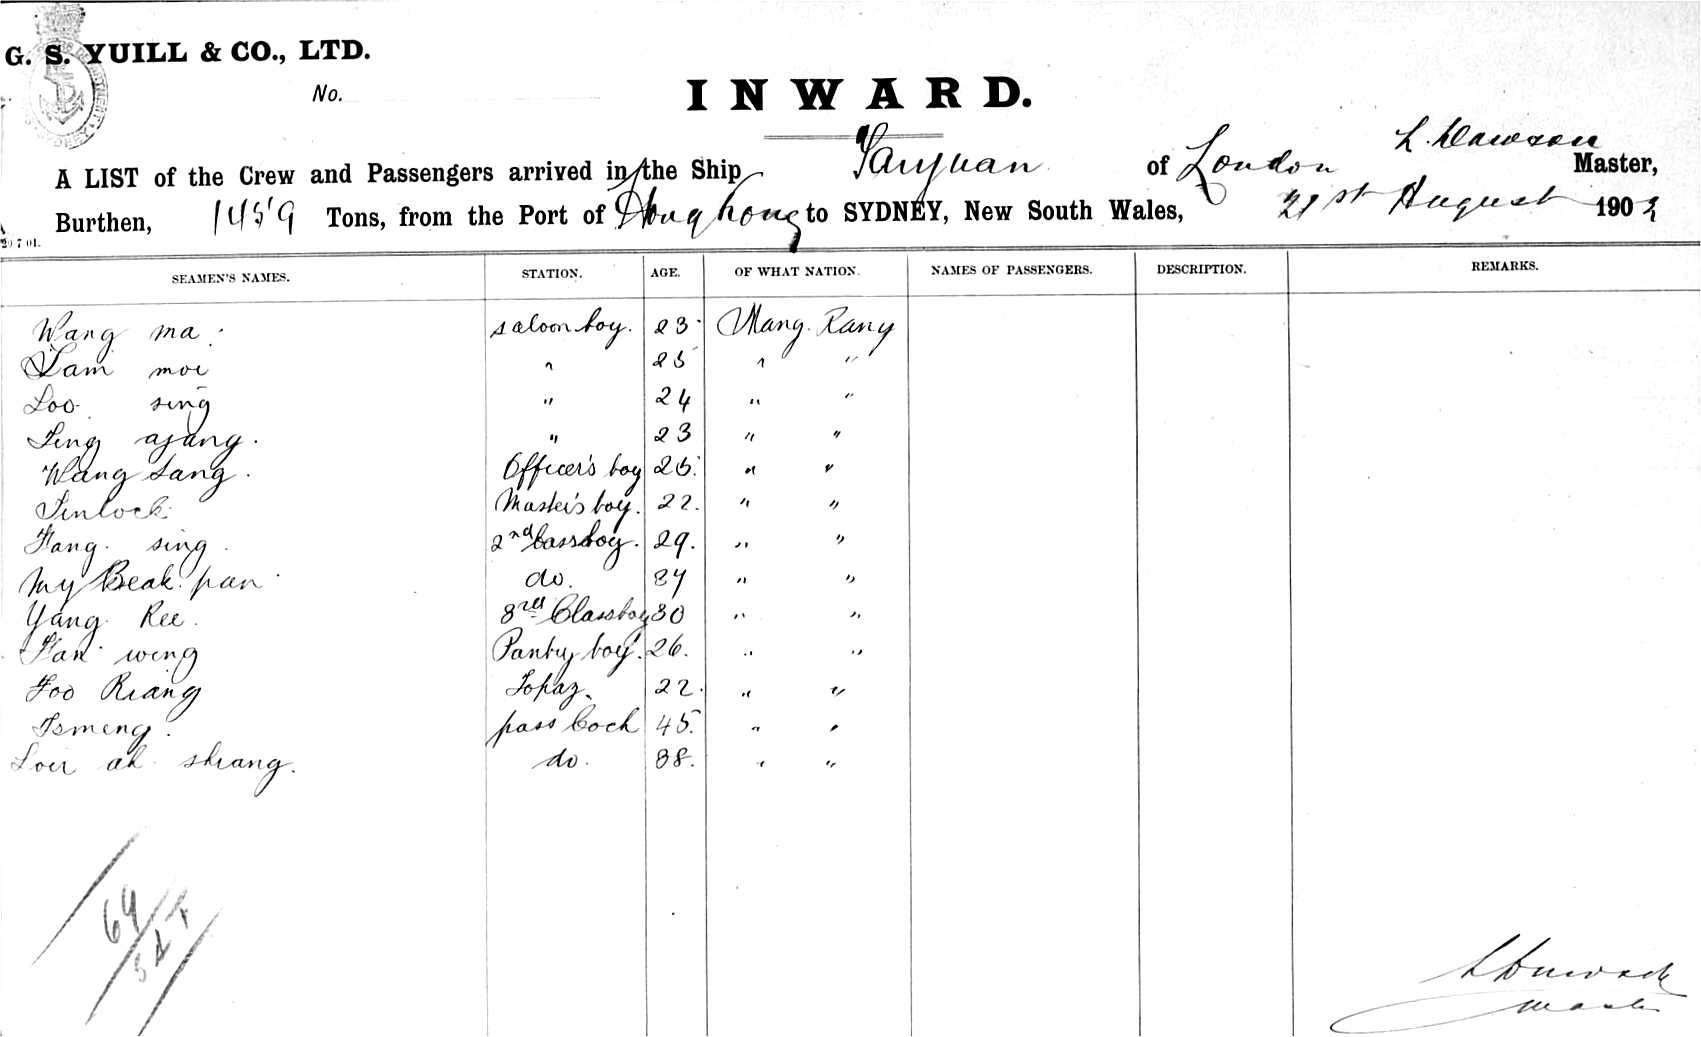 G. S. YUILL & CO., LTD.
No.
INWARD.
L. Dawson
A LIST of the Crew and Passengers arrived in the Ship Taiyuan of London Master,
Burthen, 1459 Tons, from the Port of Hong Kong to SYDNEY, New South Wales, 21st August 190
20 7 01.
SEAMEN'S NAMES. STATION. AGE. OF WHAT NATION. NAMES OF PASSENGERS. DESCRIPTION. REMARKS.
Wang ma. saloon boy. 23 Mang Rany
Lam moi " 25 " "
Loo sing " 24 " "
Ting ajang. " 23 " "
Wang sang. Officer's boy 25. " "
Tinlock Master's boy. 22. " "
Fang sing. 2nd Classboy. 29. " "
My Beak pan do. 34 " "
Yang Kee. 3rd Classboy 30 " "
Han wing Pantry boy. 26. " "
Foo Kiang Topaz. 22. " "
Tsmeng. pass Cock 45. " "
Loer ah shang. do. 38. " "
64
Master